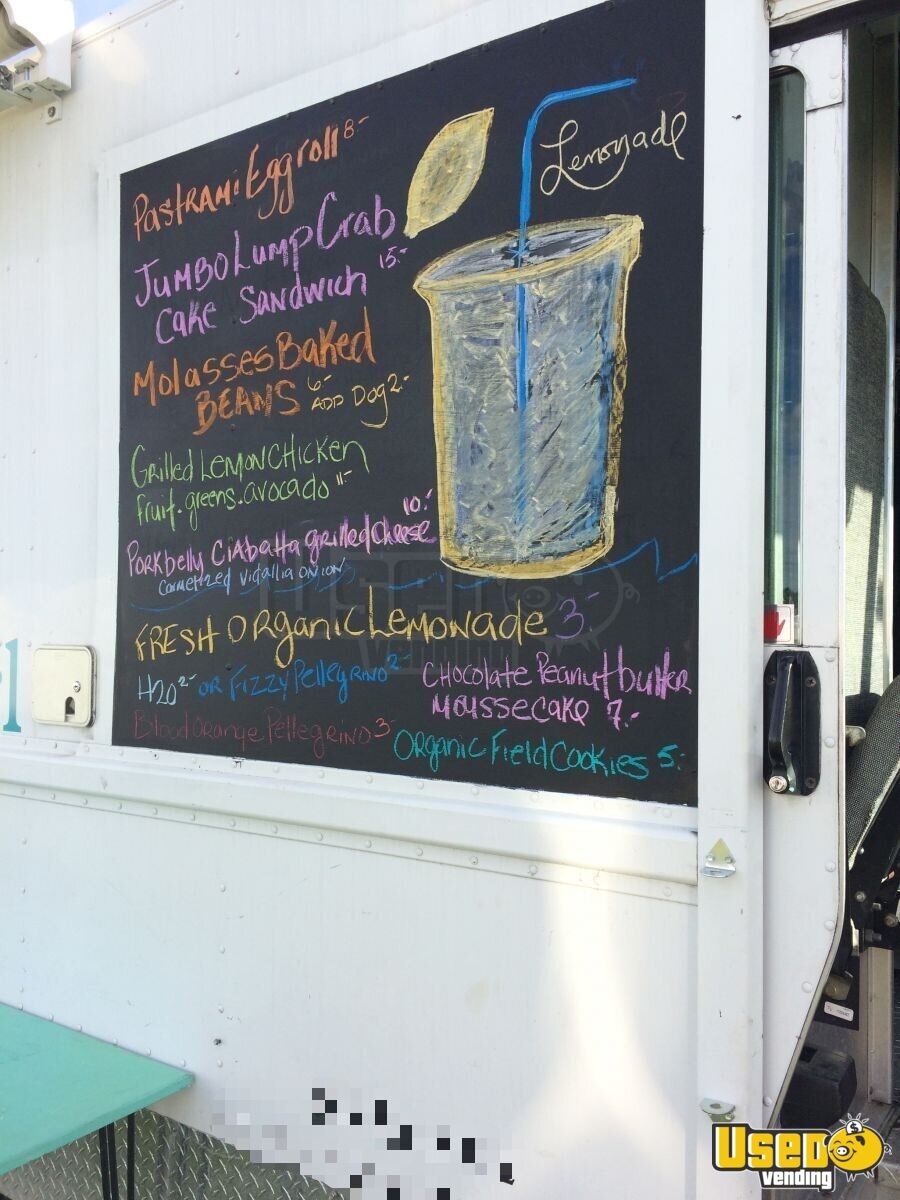 Pastrami Eggroll 8-
Lemonyade
Jumbo Lump Crab
Cake Sandwich 15-
Molasses Baked
Beans 6- ADD Dog 2-
Grilled Lemon Chicken
fruit. greens. avocado 11-
10-
Porkbelly Ciabatta grilled cheese
Carmelized Vidallia Onion
FRESH Organic Lemonade 3-
H2O 2- or Fizzy Pellegrino 2-
Blood Orange Pellegrino 3-
Chocolate Peanutbutter
Moussecake 7.-
Organic Field Cookies 5-
USED
vending
USED
vending